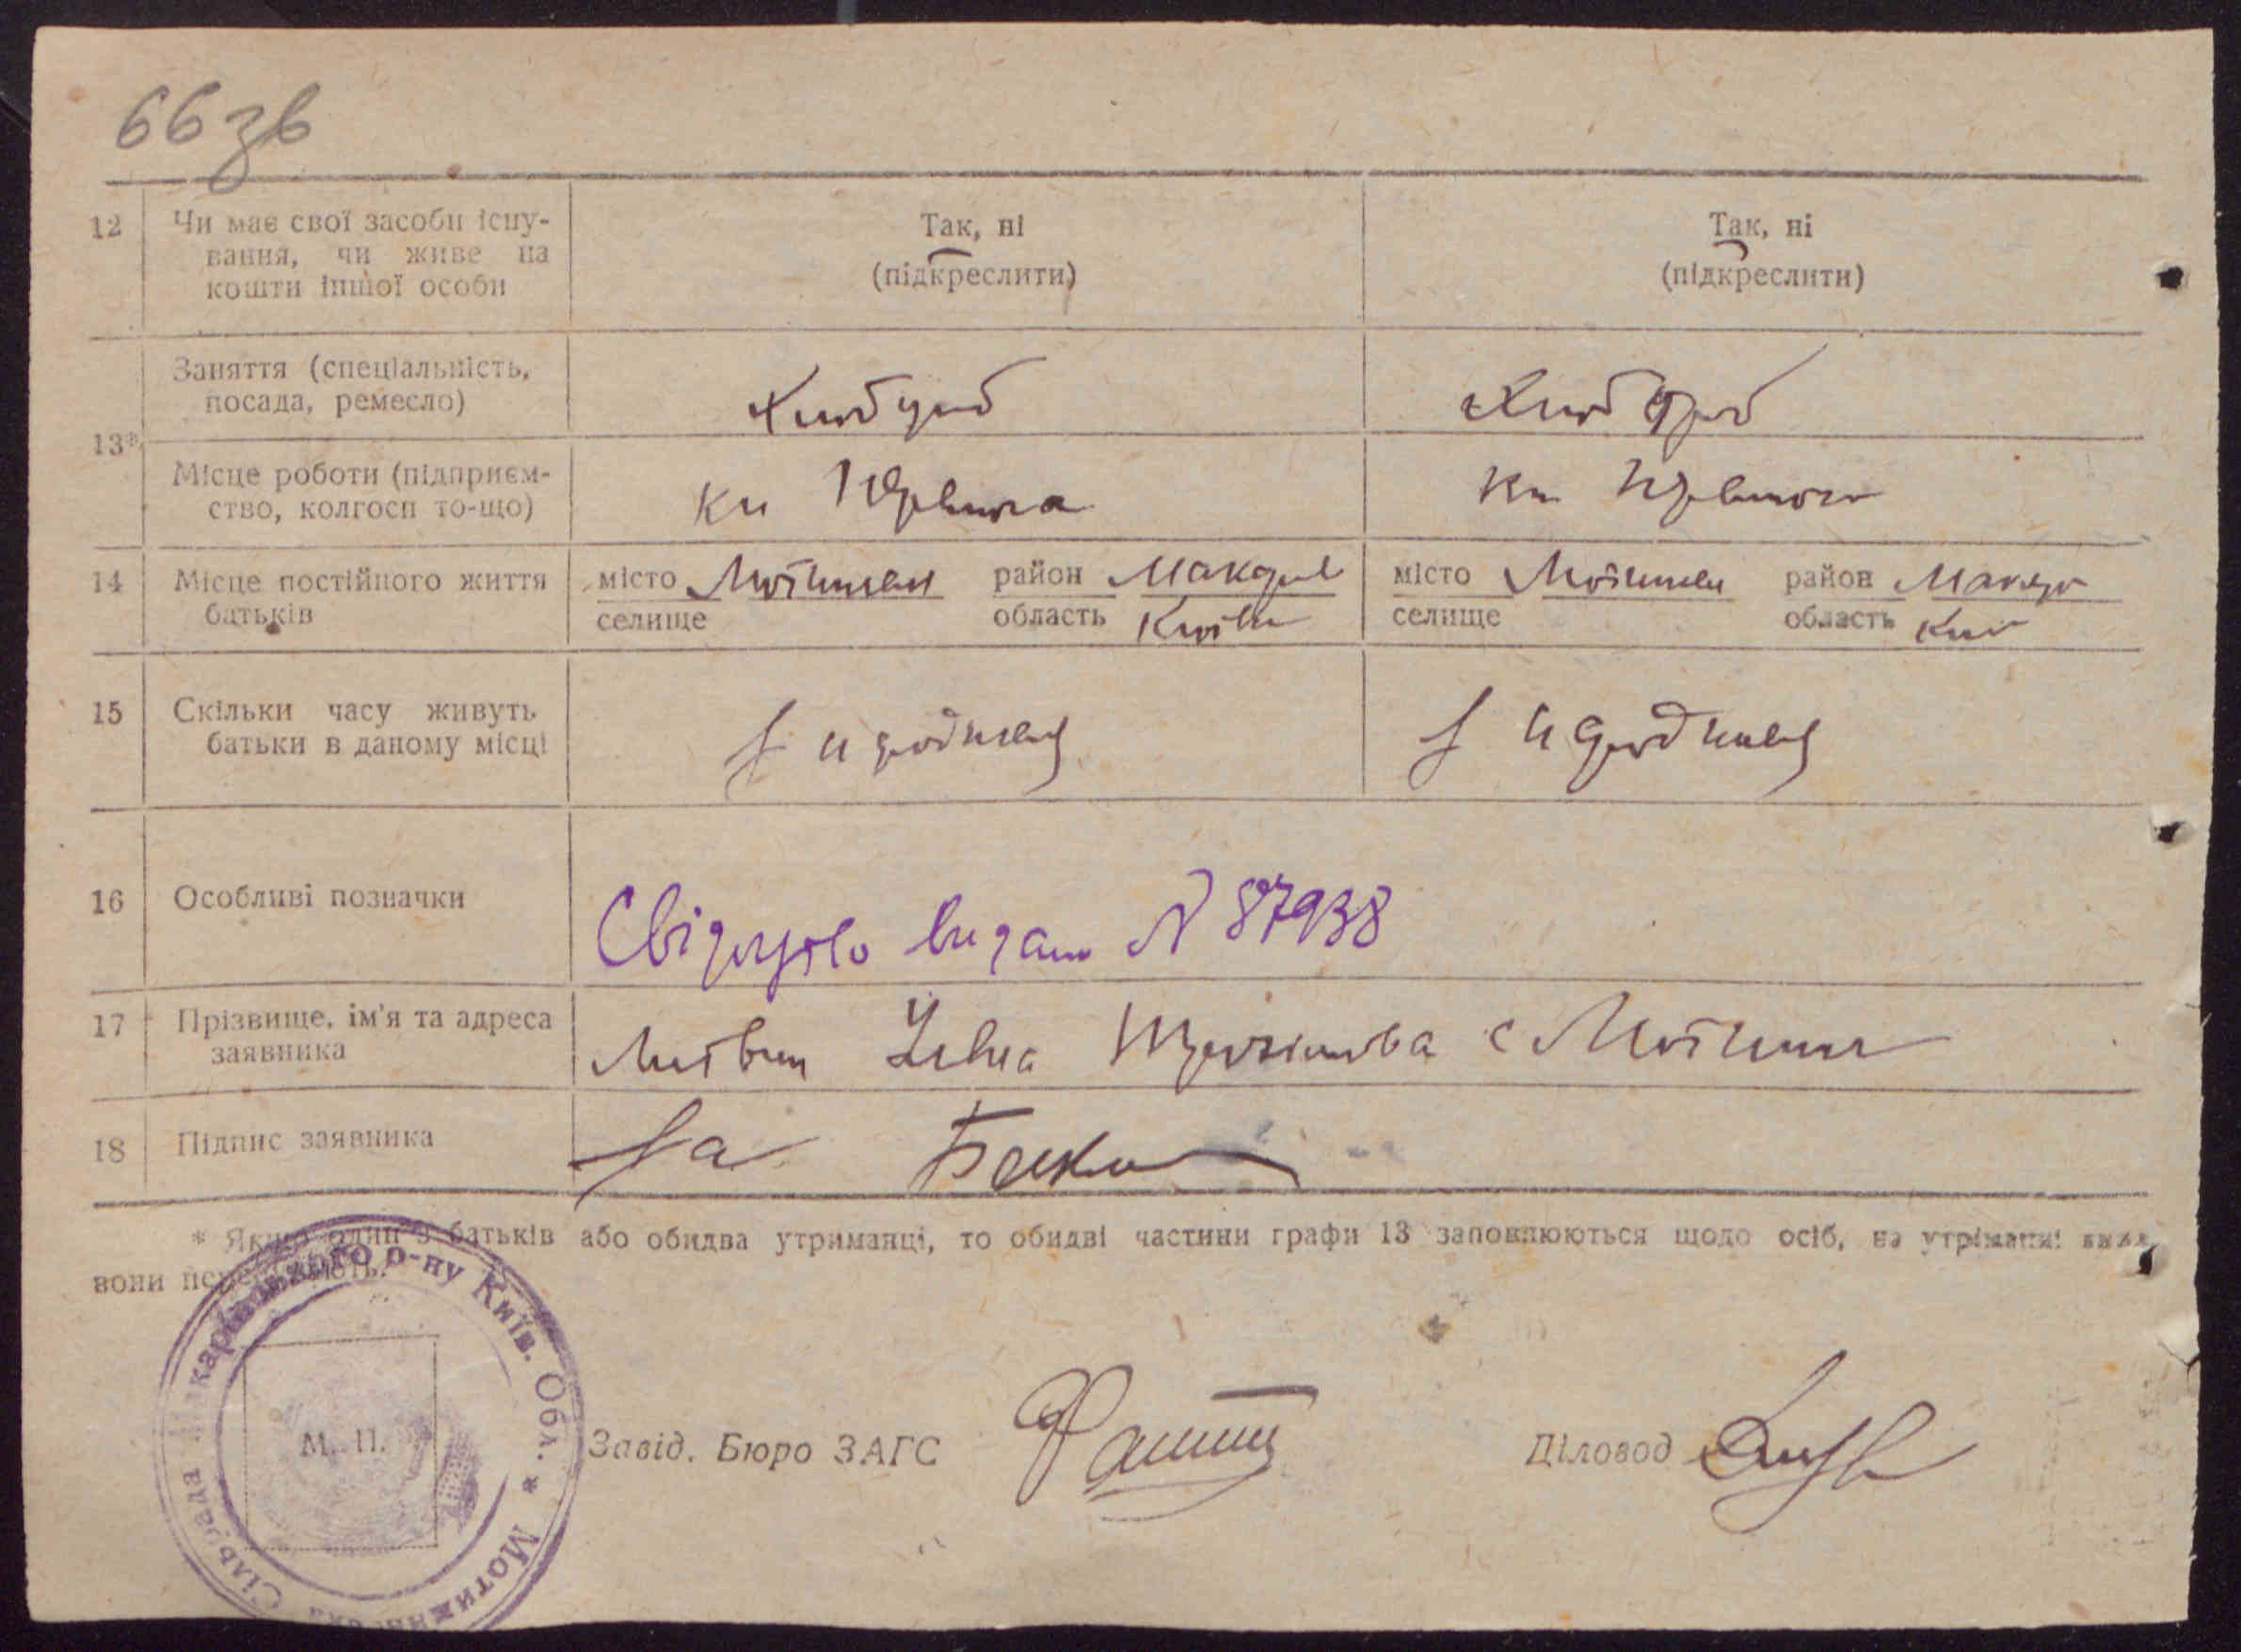 66 зв
12 Чи має свої засоби існу- Так, ні Так, ні
вання, чи живе на (підкреслити) (підкреслити)
кошти іншої особи
Заняття (спеціальність, Хлібороб Хлібороб
посада, ремесло)
13*
Місце роботи (підприєм-
ство, колгосп то-що)
14 Місце постійного життя місто Мотижин район Макарів місто Мотижин район Макар
батьків селище область Київ селище область Киї
15 Скільки часу живуть
батьки в даному місці
16 Особливі позначки Свідоцтво видано № 87938
17 Прізвище, ім'я та адреса Литвин с Мотижин
заявника
18 Підпис заявника За
* Якщо один з батьків або обидва утриманці, то обидві частини графи 13 заповнюються щодо осіб, на утріманні яких
вони перебувають.
Сільрада Макарівського р-ну Київ. Обл. * Мотижинська
М. П.
Завід. Бюро ЗАГС
Діловод